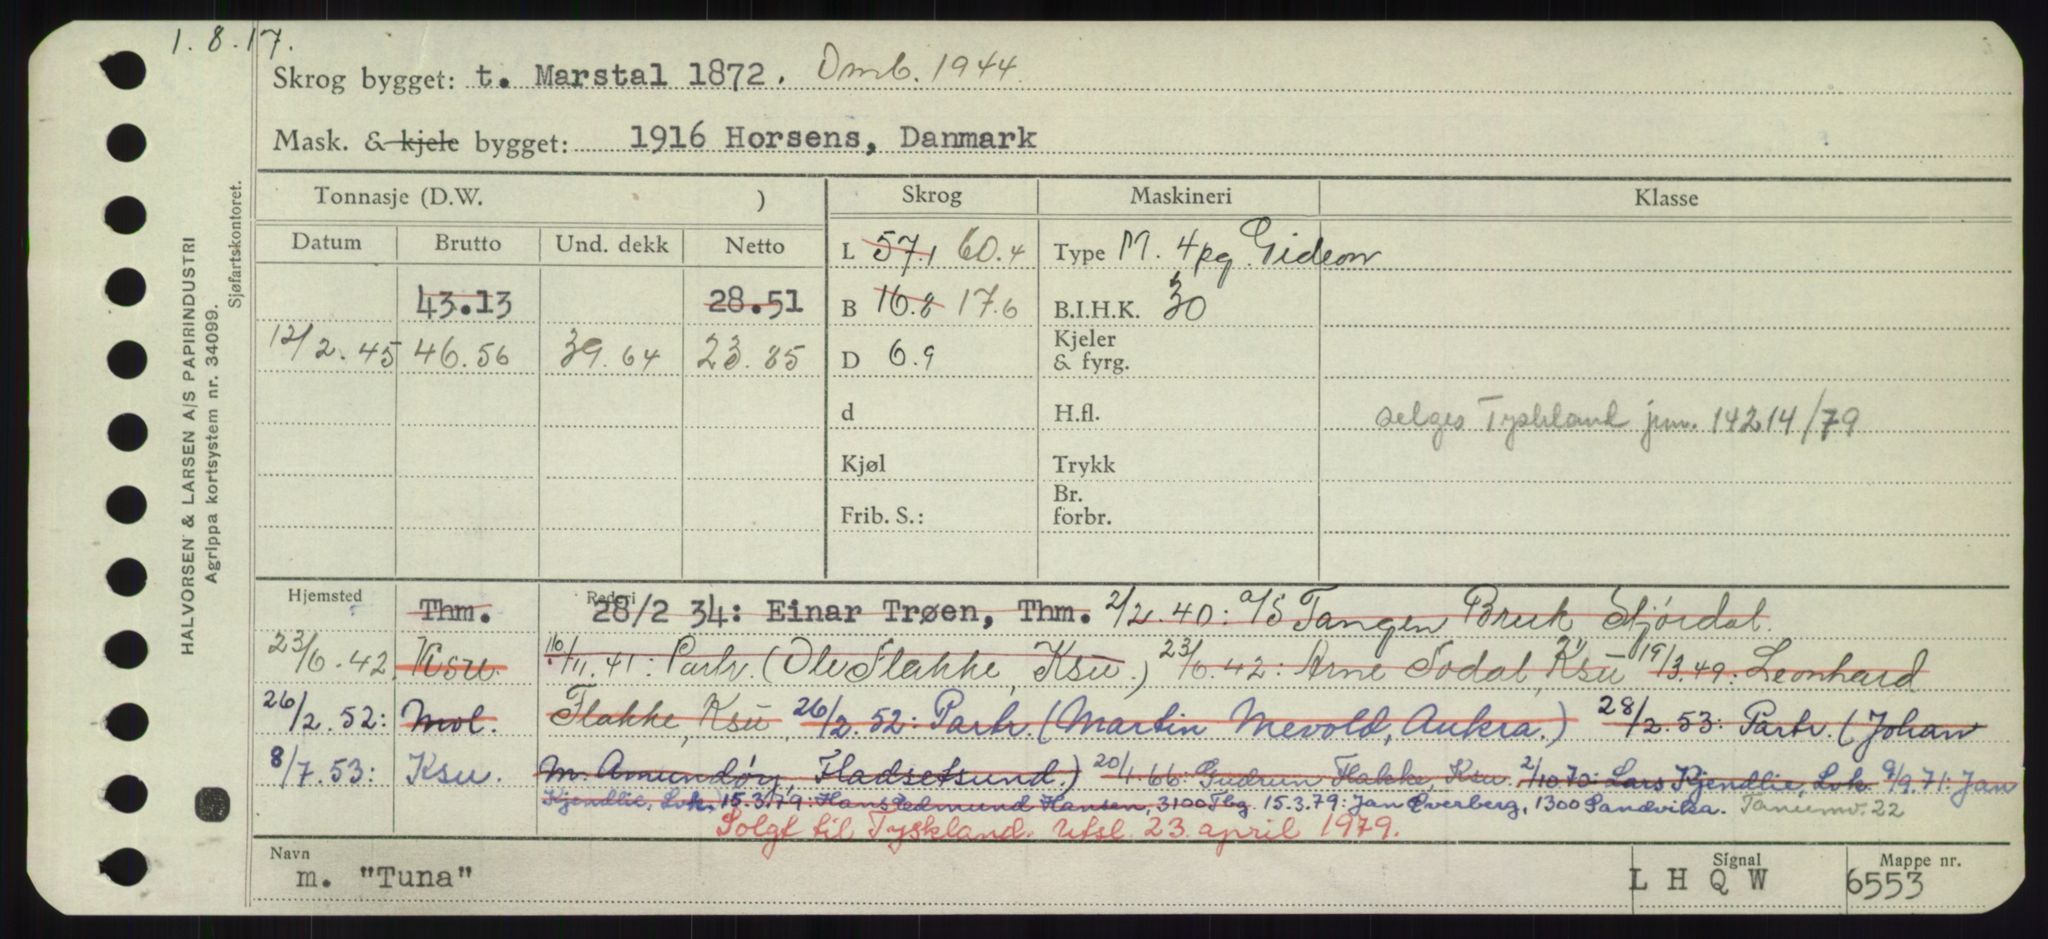 1.8.17.
Skrog bygget: t. Marstal 1872. Omb. 1944.
Mask. & kjele bygget: 1916 Horsens, Danmark
HALVORSEN & LARSEN A/S PAPIRINDUSTRI
Agrippa kortsystem nr. 34099.
Sjøfartskontoret.
Tonnasje (D.W. ) Skrog Maskineri Klasse
Datum Brutto Und. dekk Netto L 57.1 60.4 Type M. 4pg. Gideon
43.13 28.51 B 16.8 17.6 B.I.H.K. 30
12/2.45 46.56 39.64 23.85 D 6.9 Kjeler & fyrg.
d H.fl. selges Tyskland jnr. 14214/79
Kjøl Trykk
Frib. S.: Br. forbr.
Hjemsted Rederi
Thm. 28/2 34: Einar Trøen, Thm. 2/2.40: a/s Tangen Bruk Stjørdal.
23/6.42 Ksu. 10/11.41: Partr. (Ole Flakke, Ksu.) 23/6.42: Arne Sodal, Ksu 19/3.49: Leonhard
26/2.52: Mol. Flakke, Ksu 26/2.52: Partr. (Martin Mevold, Aukra.) 28/2.53: Partr. (Johan
8/7.53: Ksu. M. Amundøy, Fladsetsund.) 20/1.66: Gudrun Flakke, Ksu. 2/10 70: Lars Kjendlie, Lok. 9/9.71: Jan
Kjendlie, Lok. 15.3.79: Hans Edmund Hansen, 3100 Tbg. 15.3.79: Jan Everberg, 1300 Sandvika. Tanumv. 22
Solgt til Tyskland. Utsl. 23. april 1979.
Navn Signal Mappe nr.
m. "Tuna" L H Q W 6553